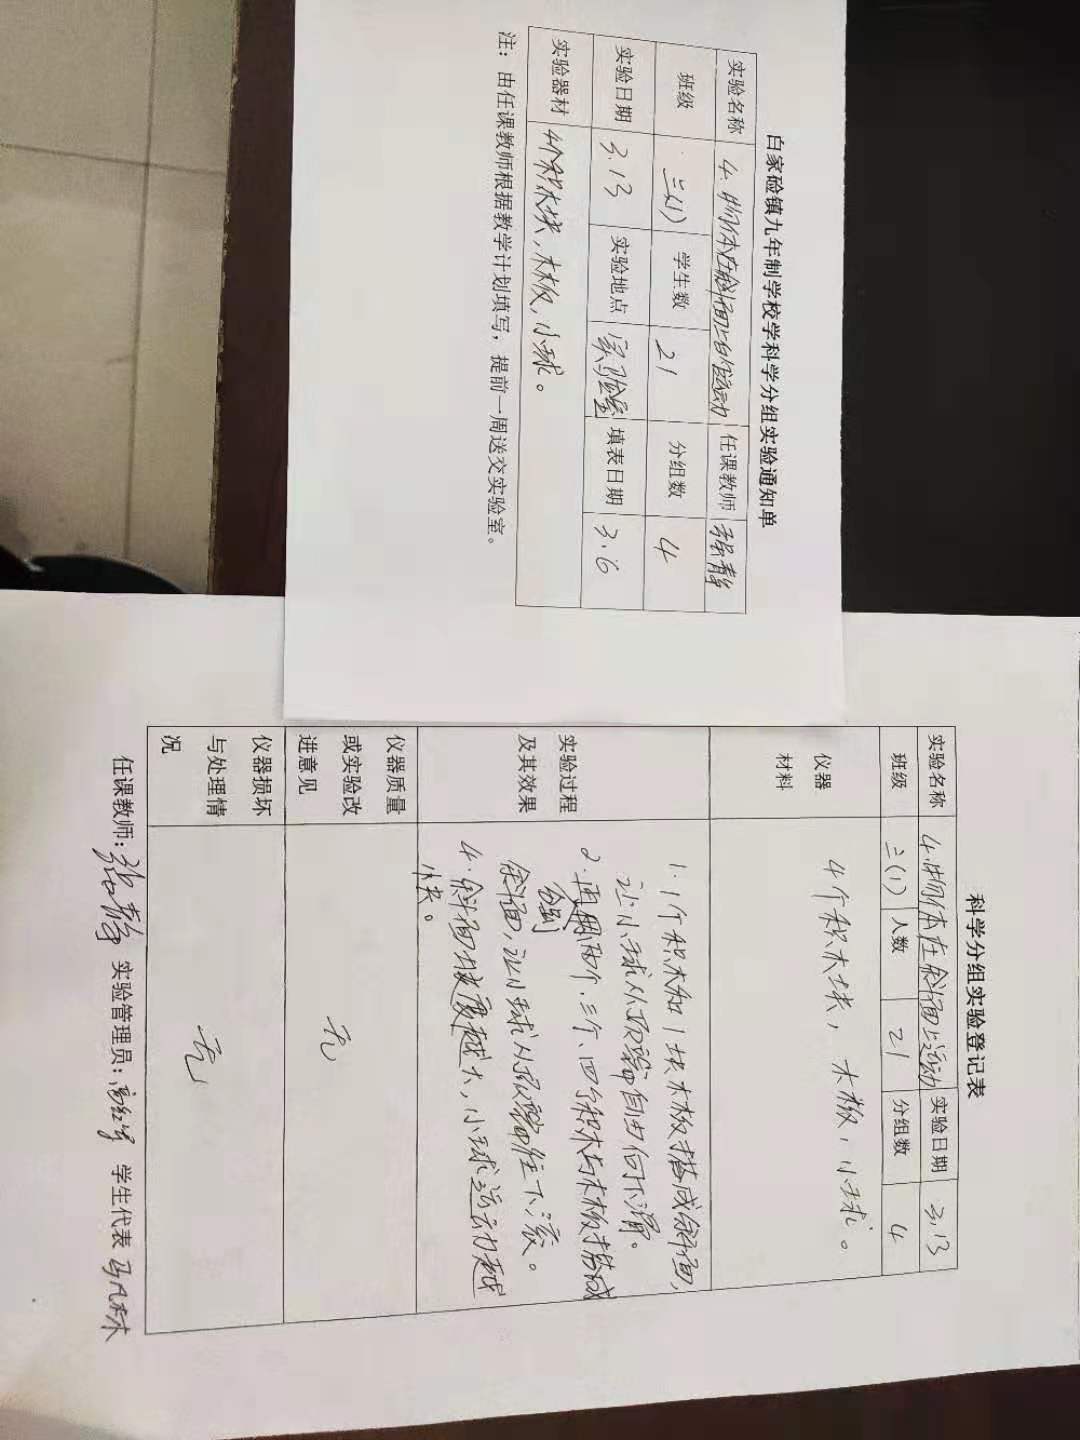 白家硷镇九年制学校学科学分组实验通知单
实验名称 4.物体在斜面上的运动 任课教师 张静
班级 三(1) 学生数 21 分组数 4
实验日期 3.13 实验地点 实验室 填表日期 3.6
实验器材 4个积木块，木板，小球。
注：由任课教师根据教学计划填写，提前一周送交实验室。
科学分组实验登记表
实验名称 4.物体在斜面上运动 实验日期 3.13
班级 三(1) 人数 21 分组数 4
仪器材料 4个积木块，木板，小球。
实验过程及其效果
1.1个积木和1块木板搭成斜面，
让小球从顶端自由向下滑。
2.再分别用两个、三个、四个积木与木板搭成
斜面，让小球从顶端往下滚。
4.斜面坡度越大，小球运动越
快。
仪器质量或实验改进意见 无
仪器损坏与处理情况 无
任课教师：张静 实验管理员：高 学生代表 马凡